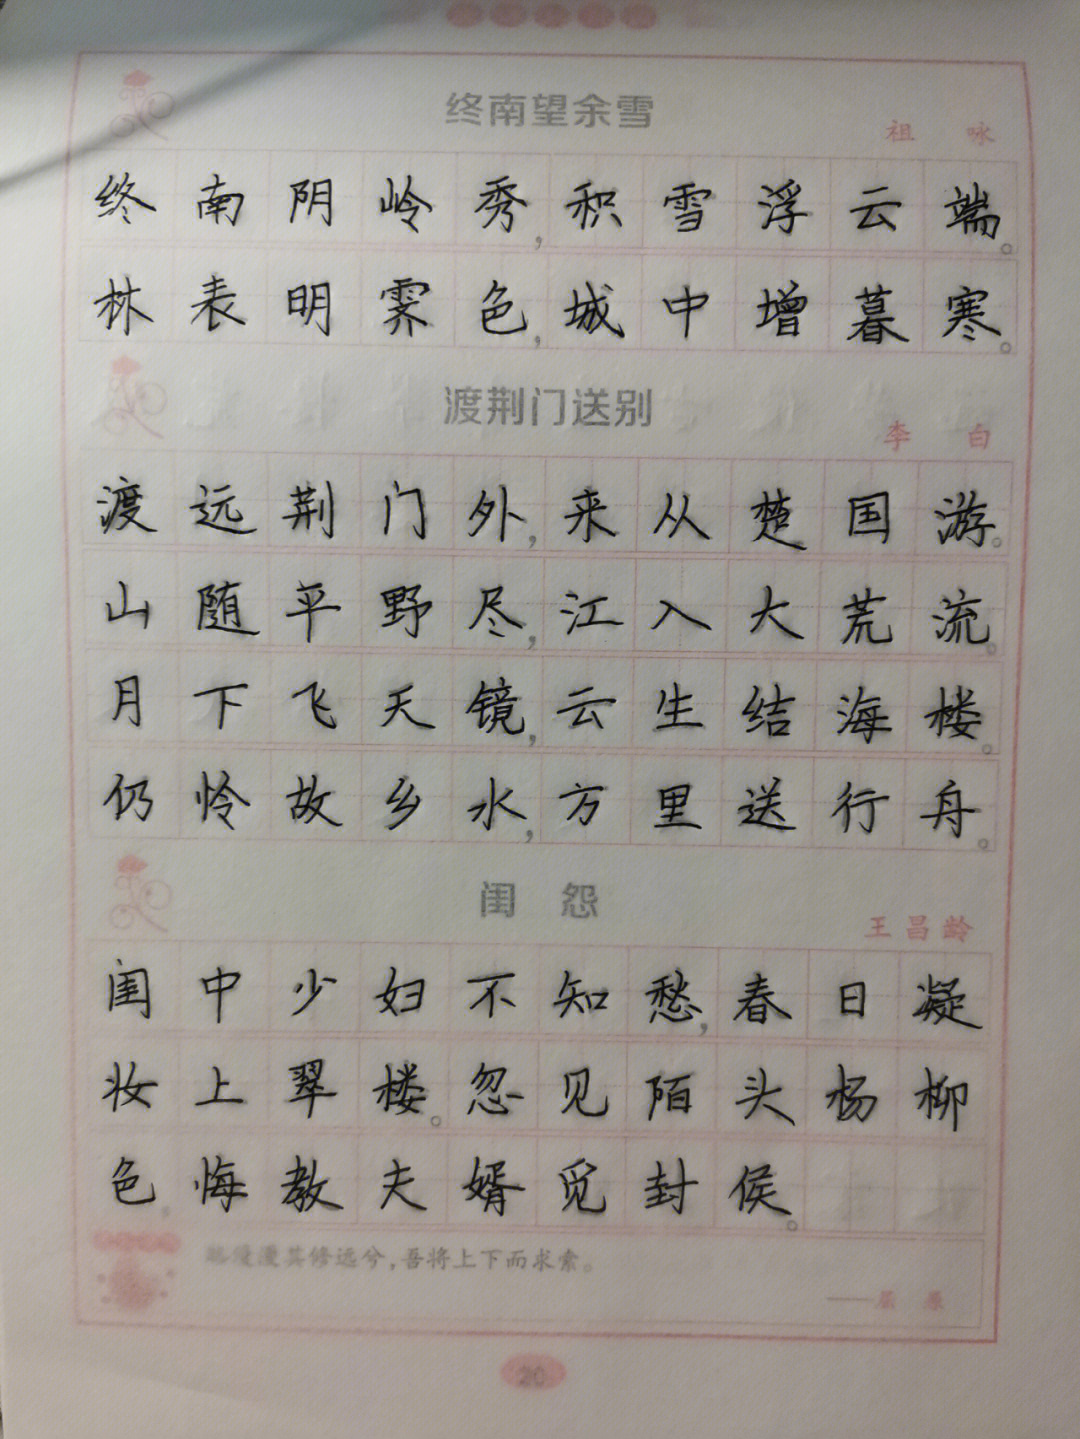 终南望余雪
祖咏
终南阴岭秀,积雪浮云端。
林表明霁色,城中增暮寒。
渡荆门送别
李白
渡远荆门外,来从楚国游。
山随平野尽,江入大荒流。
月下飞天镜,云生结海楼。
仍怜故乡水,方里送行舟。
闺怨
王昌龄
闺中少妇不知愁,春日凝
妆上翠楼。忽见陌头杨柳
色悔教夫婿觅封侯。
路漫漫其修远兮,吾将上下而求索。
——屈原
20